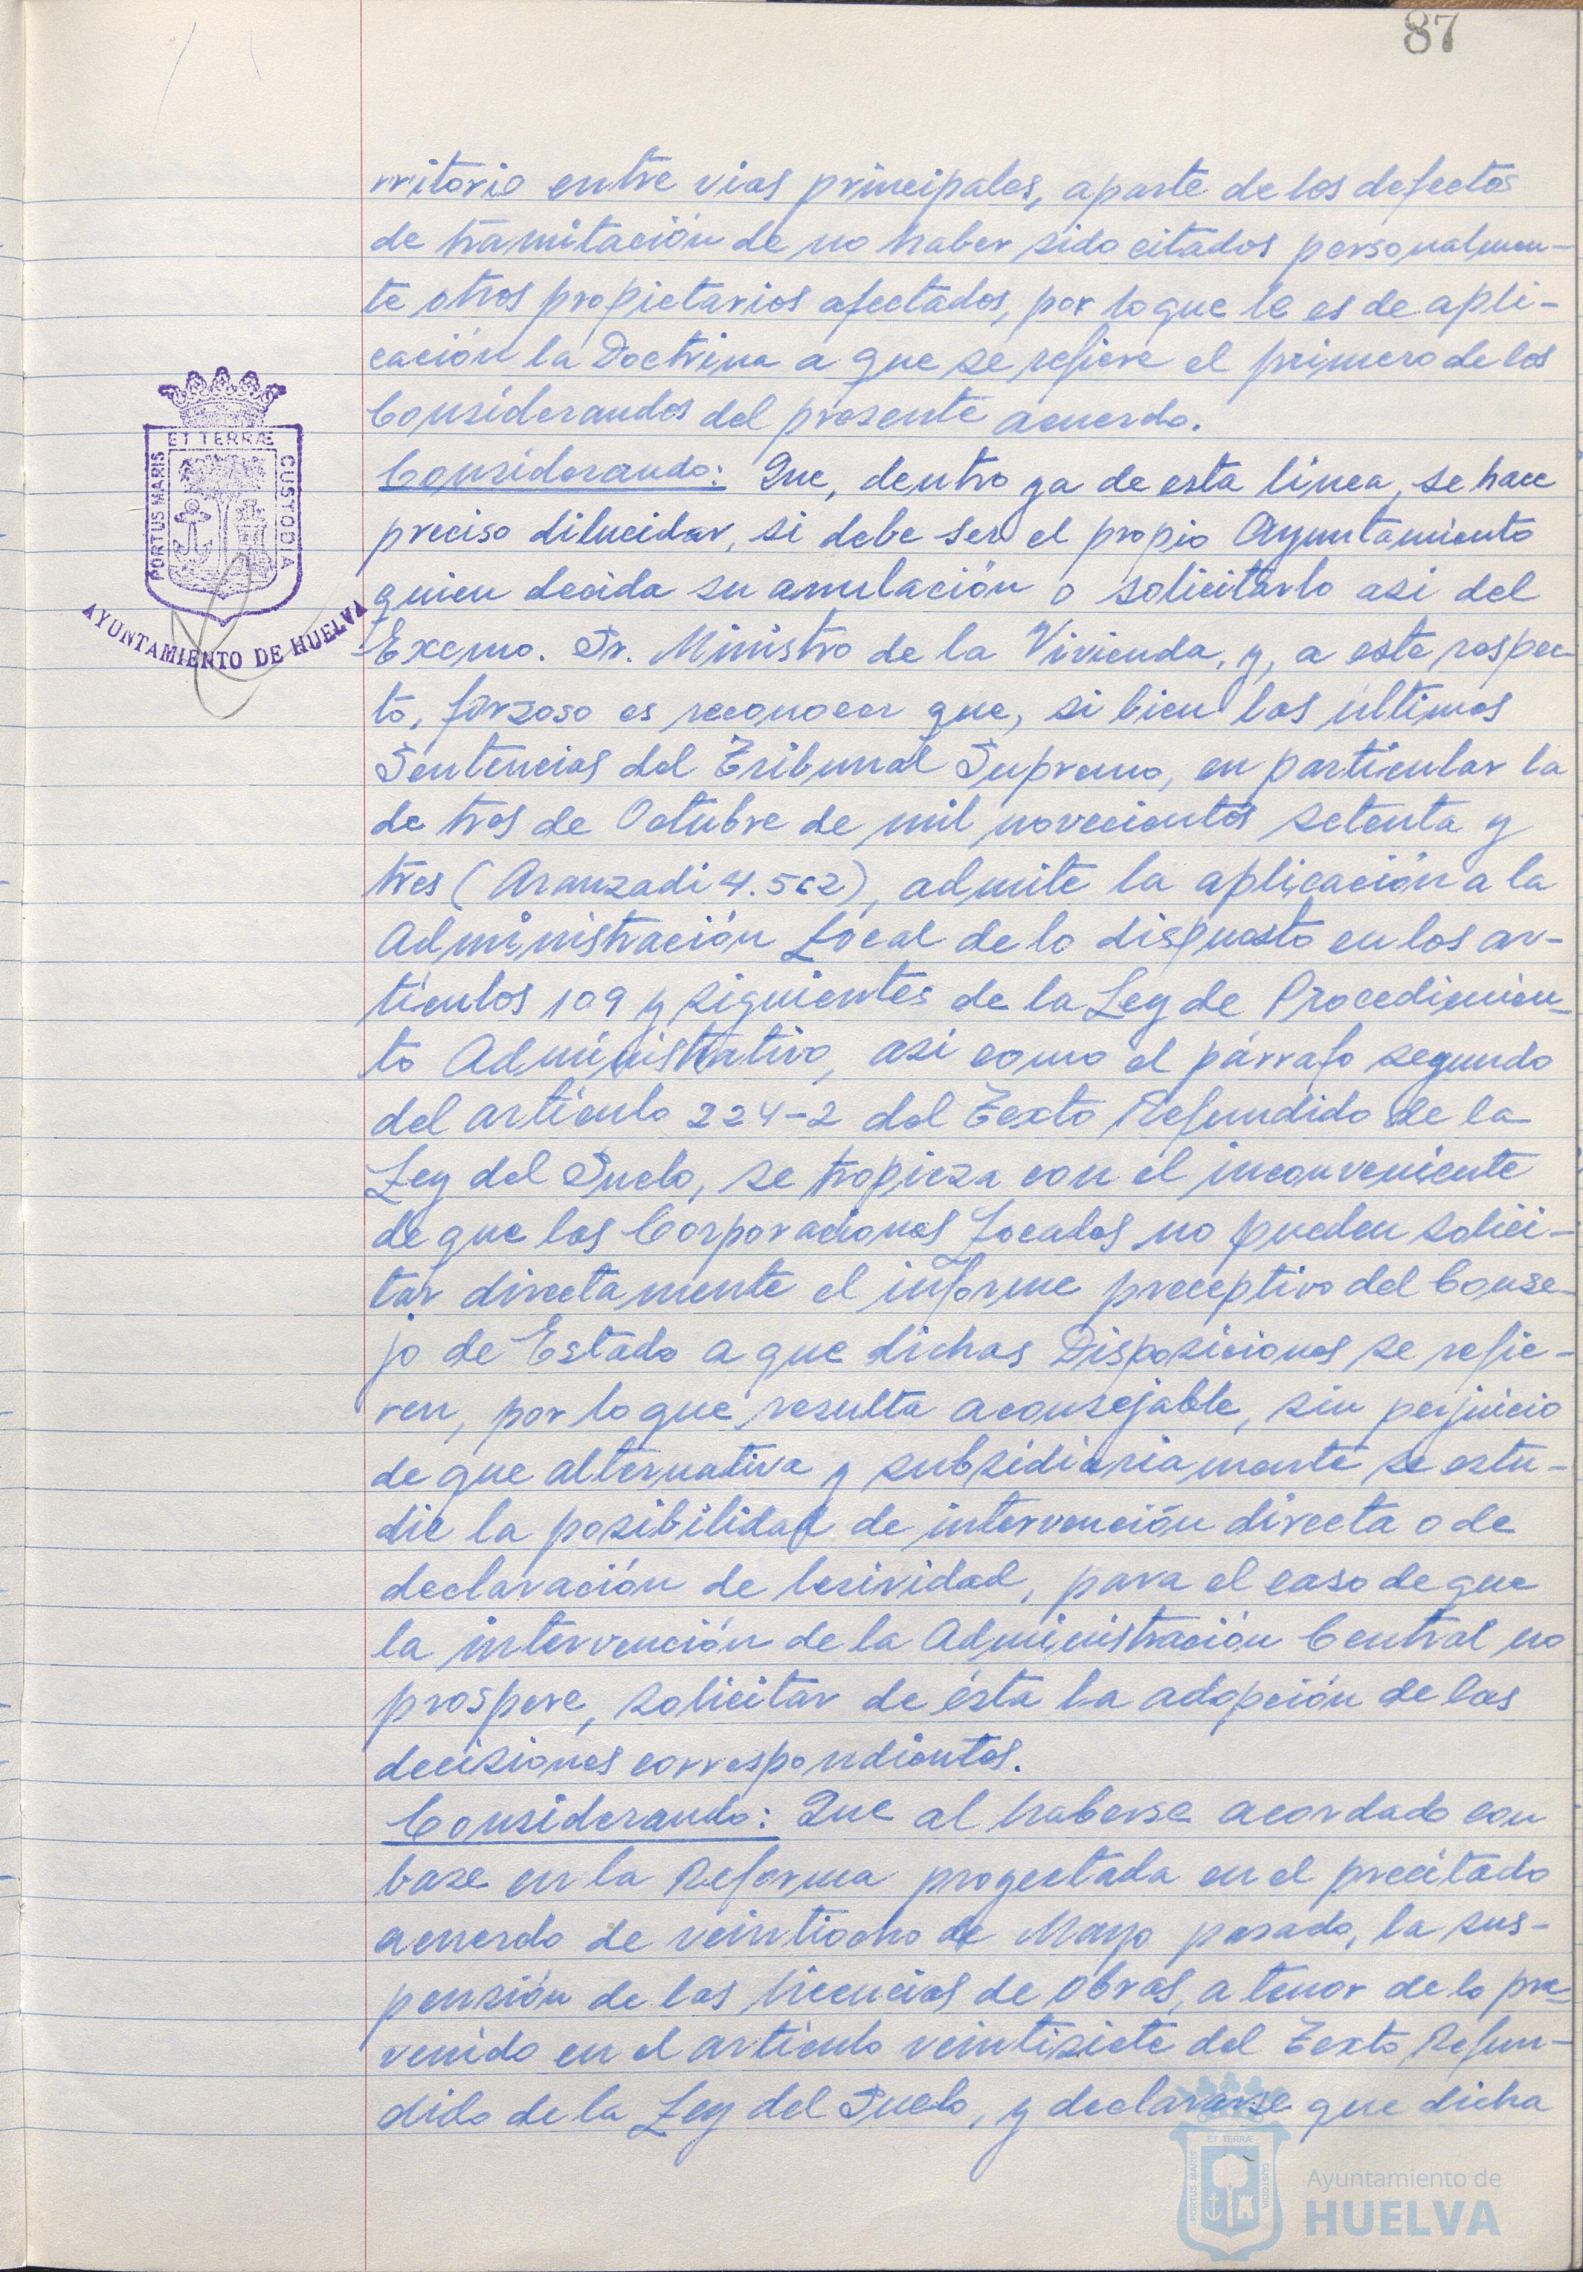 87
rritorio entre vias principales, aparte de los defectos
de tramitación de no haber sido citados personalmen-
te otros propietarios afectados, por lo que le es de apli-
cación la Doctrina a que se refiere el primero de los
Considerandos del presente acuerdo.
Considerando: Que, dentro ya de esta linea, se hace
preciso dilucidar, si debe ser el propio Ayuntamiento
quien decida su anulación o solicitarlo asi del
Excmo. Sr. Ministro de la Vivienda, y, a este respec-
to, forzoso es reconocer que, si bien las últimas
Sentencias del Tribunal Supremo, en particular la
de tres de Octubre de mil novecientos setenta y
tres (Aranzadi 4.562), admite la aplicación a la
Administración Local de lo dispuesto en los ar-
tículos 109 y siguientes de la Ley de Procedimien-
to Administrativo, asi como el párrafo segundo
del artículo 224-2 del Texto Refundido de la
Ley del Suelo, se tropieza con el inconveniente
de que las Corporaciones Locales no pueden solici-
tar directamente el informe preceptivo del Conse-
jo de Estado a que dichas Disposiciones se refie-
ren, por lo que resulta aconsejable, sin perjuicio
de que alternativa y subsidiariamente se estu-
die la posibilidad de intervención directa o de
declaración de lesividad, para el caso de que
la intervención de la Administración Central no
prospere, solicitar de ésta la adopción de las
decisiones correspondientes.
Considerando: Que al haberse acordado con
base en la Reforma proyectada en el precitado
acuerdo de veintiocho de Mayo pasado, la sus-
pensión de las licencias de obras, a tenor de lo pre-
venido en el artículo veintisiete del Texto Refun-
dido de la Ley del Suelo, y declararse que dicha
PORTUS MARIS
ET TERRÆ
CUSTODIA
AYUNTAMIENTO DE HUELVA
PORTUS MARIS
ET TERRÆ
CUSTODIA
Ayuntamiento de
HUELVA